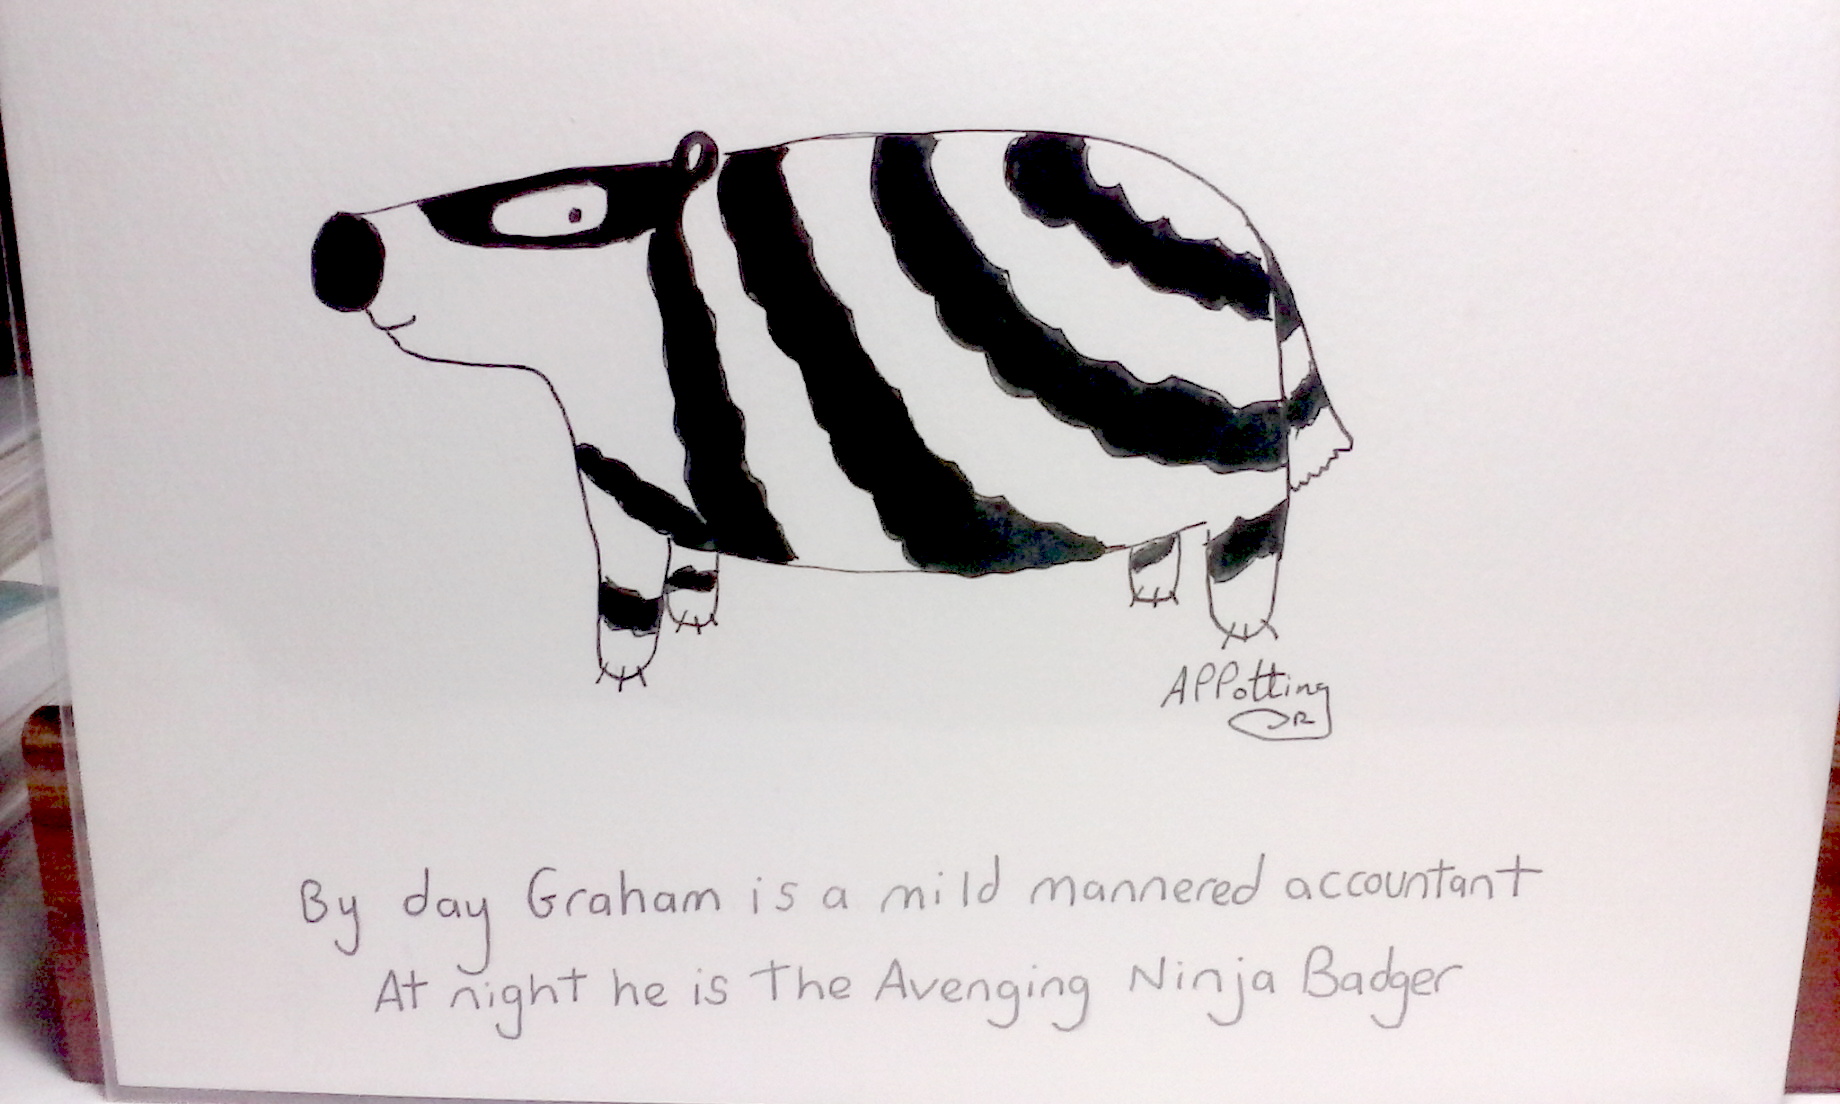 APPotting
By day Graham is a mild mannered accountant
At night he is The Avenging Ninja Badger